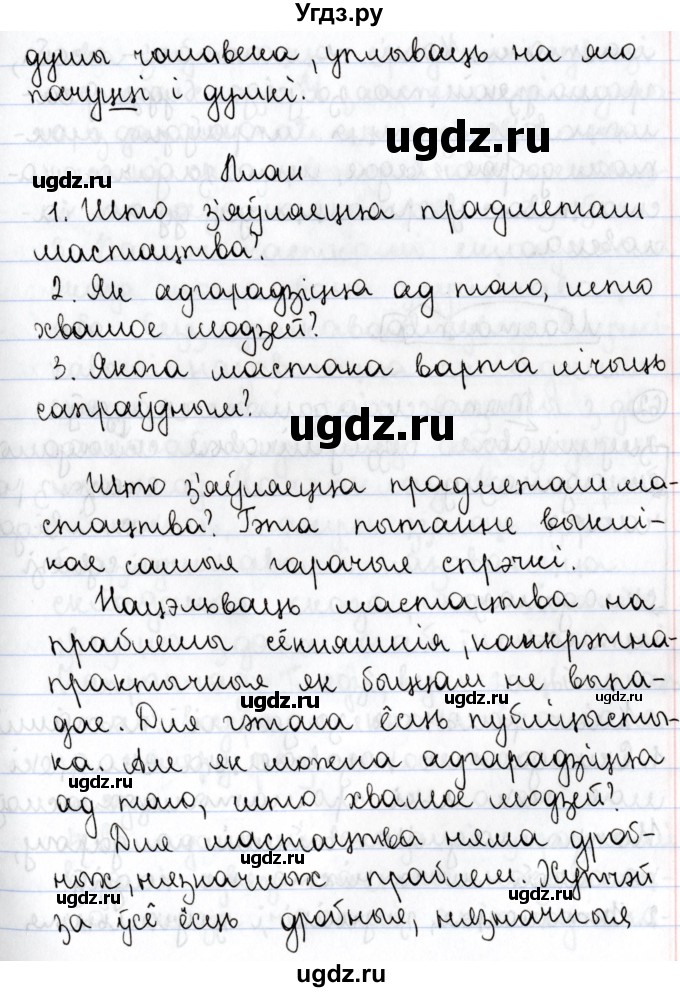 Угдз.ру
душы чалавека, уплываць на яго
пачуцці і думкі.
ugdz.ru
ugdz.ru
План
1. Што з'яўляецца прадметам
мастацтва?
ugdz.ru
2. Як адгарадзіцца ад таго, што
хвалюе людзей?
3. Якога мастака варта лічыць
сапраўдным?
ugdz.ru
Што з'яўляецца прадметам ма-
стацтва? Гэта пытанне выклі-
кае самыя гарачыя спрэчкі.
ugdz.ru
Нацэльваць мастацтва на
праблемы сённяшнія, канкрэтна-
практычныя як быццам не выпа-
ugdz.ru
ugdz.ru
дае. Для гэтага ёсць публіцысты-
ка. Але як можна адгарадзіцца
ugdz.ru
ад таго, што хвалюе людзей?
Для мастацтва няма дроб-
ugdz.ru
ных, нязначных праблем. Хутчэй
за ўсё ёсць дробныя, нязначныя
ugdz.ru
ugdz.ru